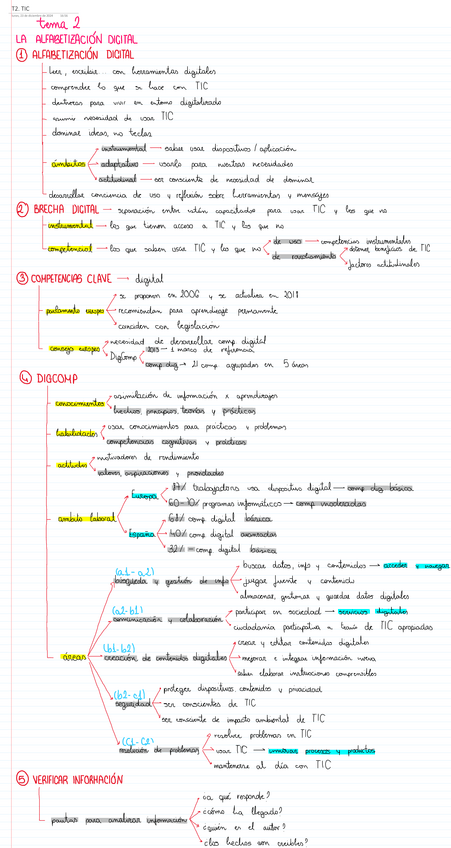 T2. TIC
tema 2
LA ALFABETIZACIÓN DIGITAL
1 ALFABETIZACIÓN DIGITAL
leer, escribir... con herramientas digitales
comprender lo que se hace con TIC
destrezas para vivir en entorno digitalizado
asumir necesidad de usar TIC
dominar ideas, no teclas
ámbitos
instrumental → saber usar dispositivos / aplicación
adaptativo → usarlo para nuestras necesidades
actitudinal → ser consciente de necesidad de dominar
desarrollar conciencia de uso y reflexión sobre herramientas y mensajes
2 BRECHA DIGITAL → separación entre están capacitados para usar TIC y los que no
instrumental → los que tienen acceso a TIC y los que no
competencial → los que saben usar TIC y los que no
de uso → competencias instrumentales
de
obtener beneficios de TIC
factores actitudinales
3 COMPETENCIAS CLAVE → digital
parlamento europeo
se proponen en 2006 y se actualiza en 2018
recomiendan para aprendizaje permanente
coinciden con legislación
consejo europeo
necesidad de desarrollar comp digital
DigComp
2013 → 1 marco de referencia
comp dig → 21 comp agrupadas en 5 áreas
4 DIGCOMP
conocimientos
asimilación de información x aprendizajes
hechos, principios, teorías y prácticas
habilidades
usar conocimientos para prácticas y problemas
competencias cognitivas y prácticas
actitudes
motivadores de rendimiento
valores, aspiraciones y prioridades
ámbito laboral
Europa
trabajadores usa dispositivo digital → comp dig básica
60-70% programas informáticos → comp moderadas
España
comp digital básica
40% comp digital avanzadas
32% = comp digital básica
áreas
(a1-a2)
búsqueda y gestión de info
buscar datos, info y contenidos → acceder y navegar
juzgar fuente y contenido
almacenar, gestionar y guardar datos digitales
(a2-b1)
comunicación y colaboración
participar en sociedad → servicios digitales
ciudadanía participativa a través de TIC apropiadas
(b1-b2)
creación de contenidos digitales
crear y editar contenidos digitales
mejorar e integrar información nueva
saber elaborar instrucciones comprensibles
(b2-c1)
seguridad
proteger dispositivos, contenidos y privacidad
ser conscientes de TIC
ser consciente de impacto ambiental de TIC
(C1-C2)
resolución de problemas
resolver problemas en TIC
usar TIC → innovar procesos y productos
mantenerse al día con TIC
5 VERIFICAR INFORMACIÓN
pautas para analizar información
¿a qué responde?
¿cómo ha llegado?
¿quién es el autor?
¿los hechos son creíbles?